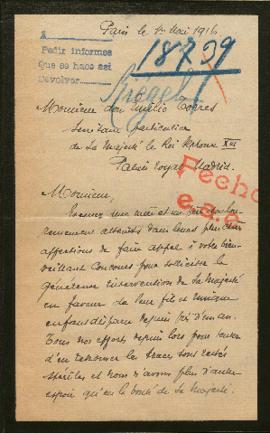 Paris le 1er Mai 1916
A
Pedir informes
Que se hace así
Devolver
18709
Monsieur don Emilio Torres
Secrétaire particulier
de Sa Majesté le Roi Alphonse XIII
Palais royal Madrid.
Fecho
Monsieur,
une mère et un père
atteints dans leurs plus chères
affections de faire appel à votre bien-
veillant concours pour solliciter la
généreuse intervention de Sa Majesté
en faveur de leur fils et unique
enfant disparu depuis d'un an.
Tous nos efforts depuis lors pour
d'en retrouver les traces sont restés
stériles et nous n'avons plus d'autre
espoir qu'en la bonté de Sa Majesté.